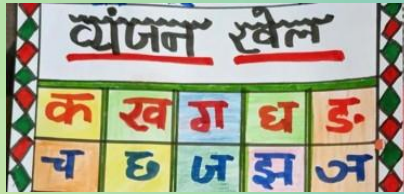 व्यंजन खेल
क ख ग घ ङ
च छ ज झ ञ